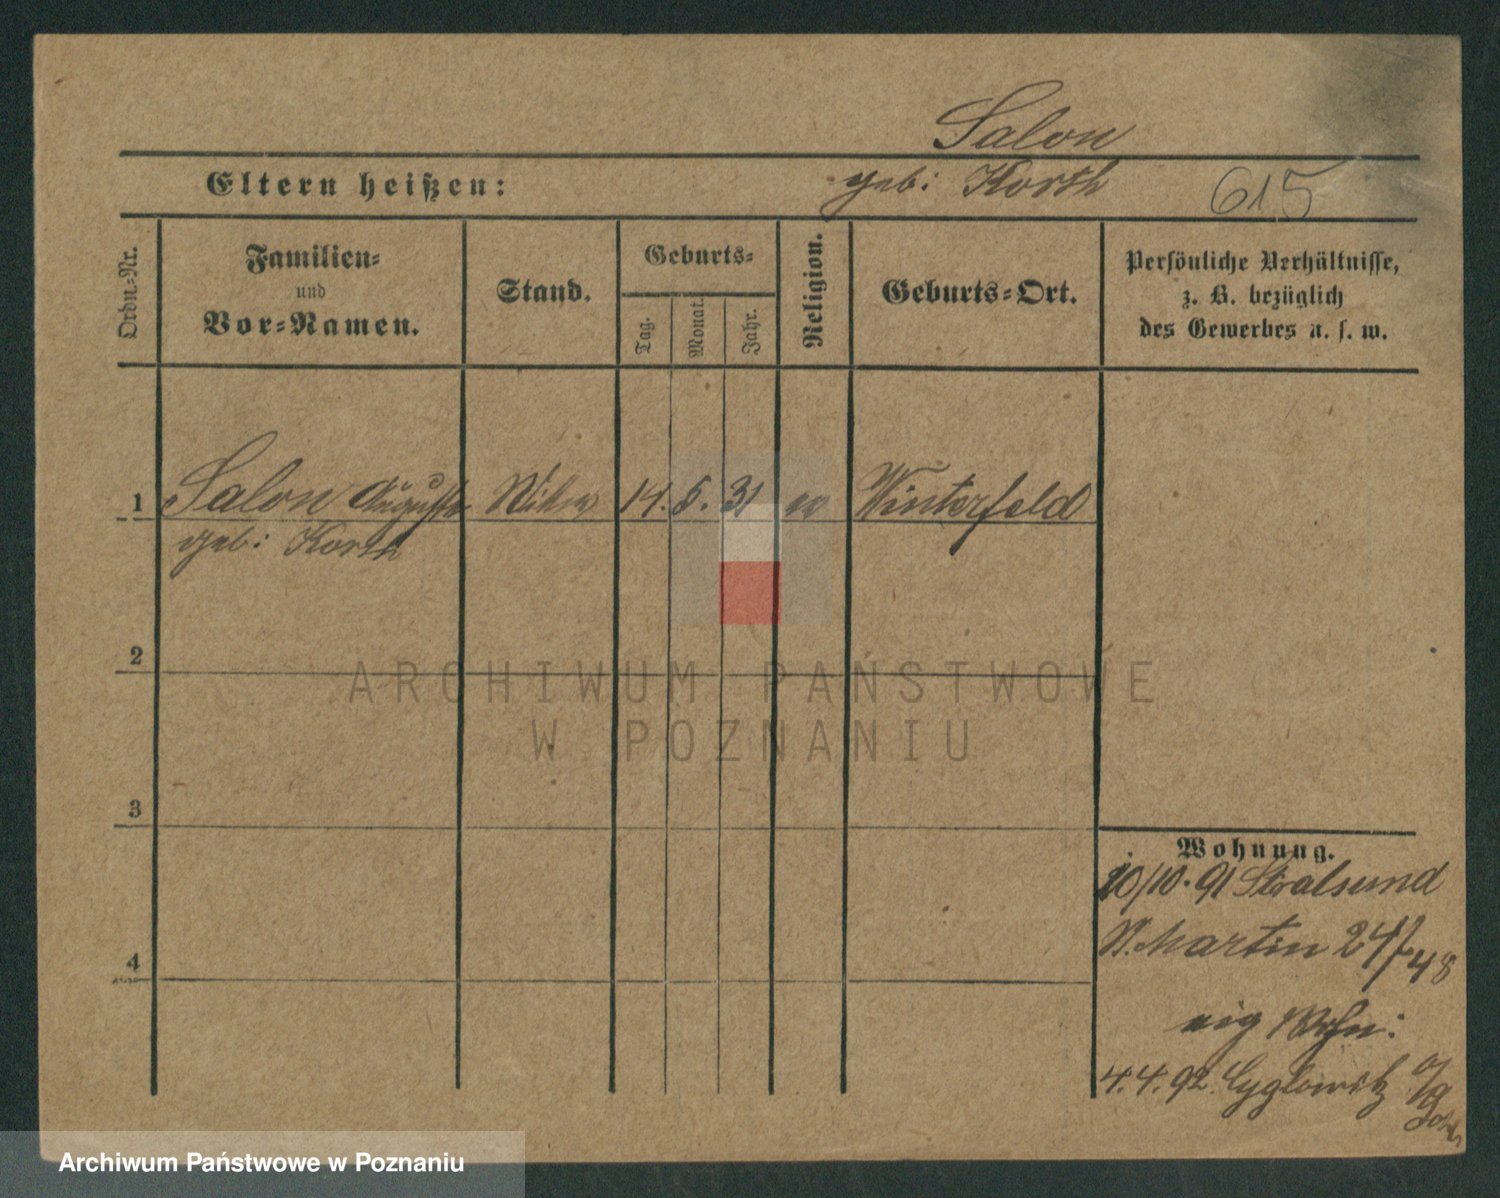 Salon
Eltern heißen:
geb: Korth
615
Ordn.-Nr.
Familien-
und
Vor-Namen.
Stand.
Geburts-
Tag.
Monat.
Jahr.
Religion.
Geburts-Ort.
Persönliche Verhältnisse,
z. B. bezüglich
des Gewerbes u. s. w.
1 Salon Auguste 14. 5. 31 ev Winterfeld
geb: Korth
2
3
4
Wohnung.
10/10. 91 Stralsund
St. Martin 24/
48
eig Wohn:
4. 4. 92
ARCHIWUM PAŃSTWOWE
W POZNANIU
Archiwum Państwowe w Poznaniu